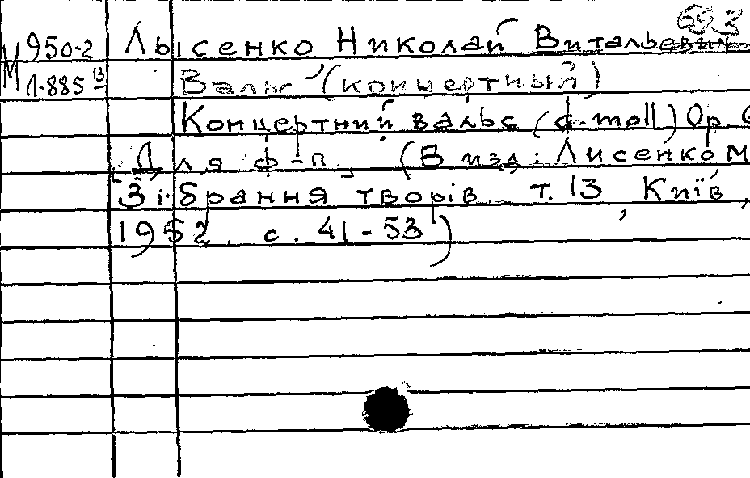 М 950-2 Лысенко Николай Витальевич
Л-885 13 Вальс (концертный)
Концертний вальс (d-moll) Op. 6
Для ф-п. (В изд: Лисенко М
Зібрання творів т. 13, Київ,
1952. с. 41-53)